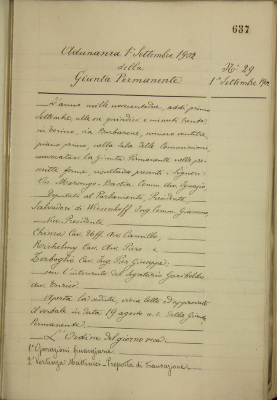 637
Adunanza 1° Settembre 1902
della
Giunta Permanente
N° 29
1° Settembre 1902
L'anno mille novecentodue, addì primo
Settembre, alle ore quindici e minuti trenta,
in Torino, via Barbaroux, numero ventitre,
piano primo, nella Sala delle
unitasi la Giunta Permanente nelle pre-
scritte forme, risultano presenti i Signori:
Cav. Marsengo-Bastia Comm. Avv. Ignazio,
Deputato al Parlamento, Presidente
Salvadori di Wiesenhoff Ing. Comm. Giacomo,
Vice Presidente
Chinea Cav. Uff. Avv. Camillo,
Cav. Avv. Pier e
Zerboglio Cav. Ing. Pier Giuseppe.
con l'intervento del Segretario
Avv. Enrico.
Aperta la seduta, viene letto ed approvato
il verbale in data 19 agosto u.s. della Giunta
Permanente.
L'Ordine del giorno reca:
1° Operazioni finanziarie.
2° Vertenza Mattirolo - Proposta di transazione.